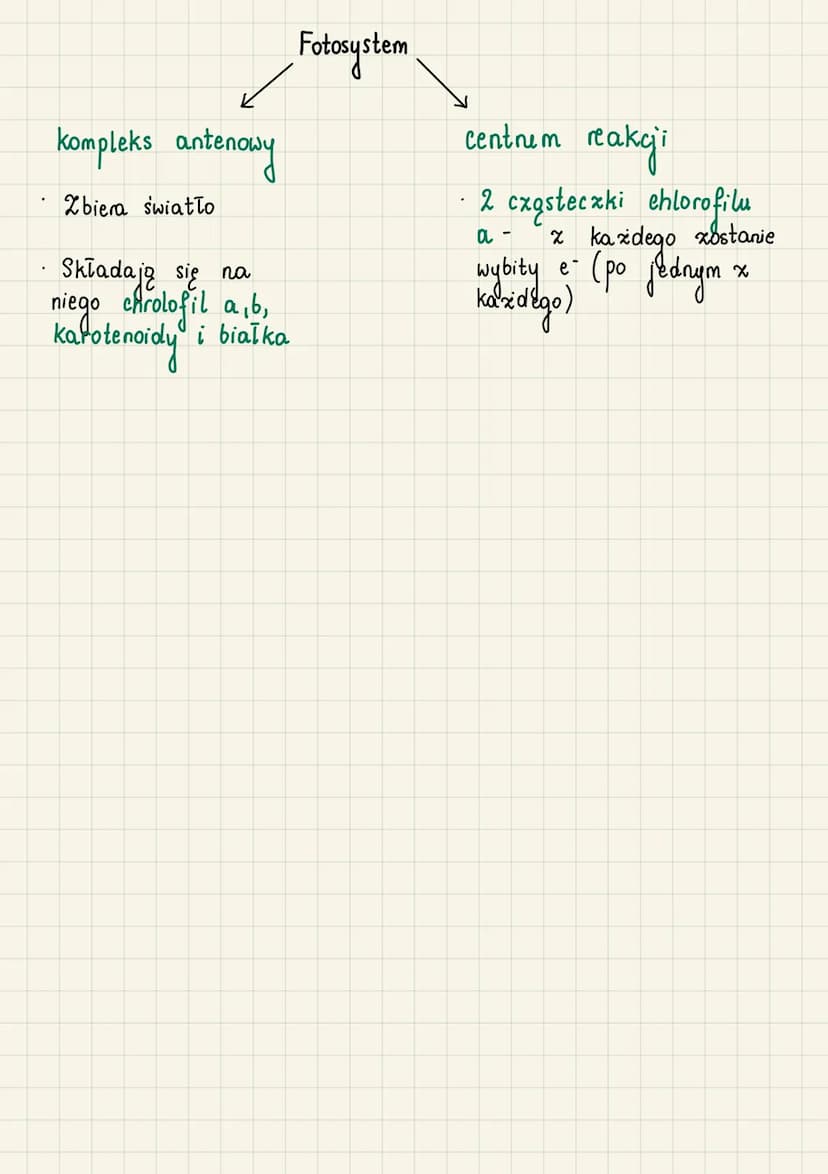 Fotosystem
kompleks antenowy
· Zbiera światło
· Składają się na
niego chrolofil a,b,
karotenoidy i białka
centrum reakcji
· 2 cząsteczki chlorofilu
a - z każdego zostanie
wybity e⁻ (po jednym z
każdego)